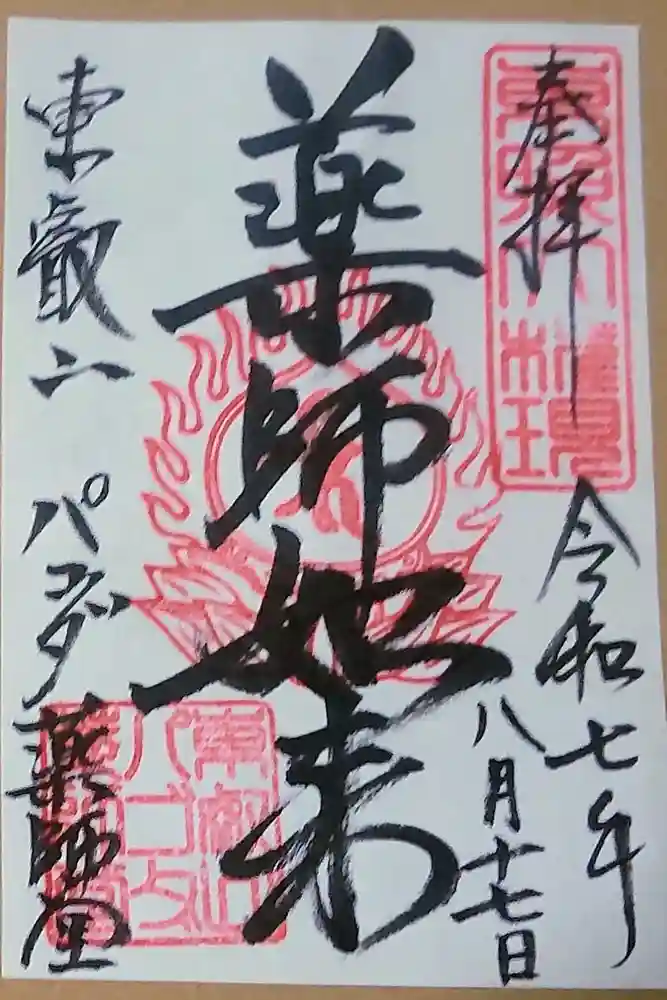 奉拝
令和七年
八月十七日
薬師如来
東叡山
パゴダ薬師堂